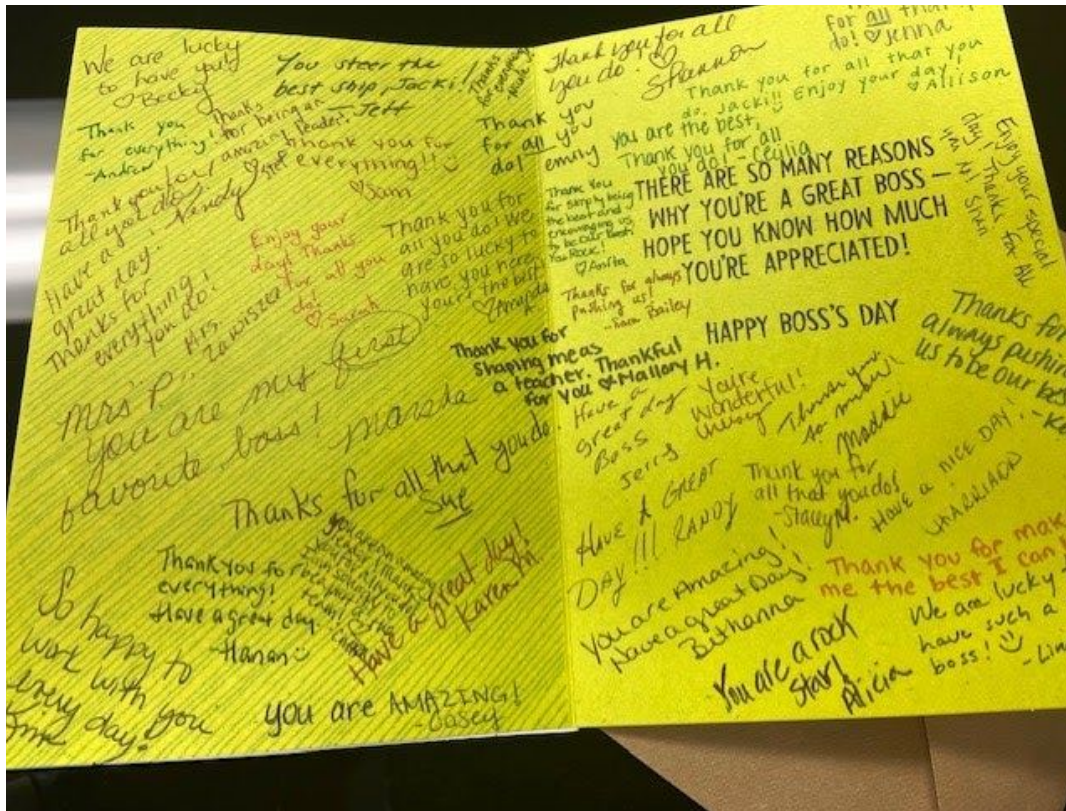 We are lucky
to have you!
♡ Becky
You steer the
best ship, Jacki!
- Jett
Thanks
for everything
Thank you
for everything!
- Andrew
Thanks
for being an
amazing leader.
Thank you for
everything!!
♡ Sam
Thank you for
all you do.
Have a
great day.
Nandy
Thanks for
everything
you do!
Mrs.
Zawiszea
Enjoy your
day! Thanks
for all you
do!
♡ Sarah
Thank you for
all you do! We
are so lucky to
have you here,
you're the best!
♡ Amanda
Mrs P..
You are my first
favorite boss! Marsha
Thank you for
shaping me as
a teacher. Thankful
for you Mallory H.
Thanks for all that you do
Sue
Thank you for
everything!
Have a great day
- Hanan
Have a great day!
Karen M.
So happy to
work with you
every day!
you are AMAZING!
- Casey
Thank you for all
you do! ♡
Shannon
for all that
do! ♡ Jenna
Thank you for all that you
do, Jacki!! Enjoy your day!
♡ Allison
Thank you
for all you
do!
emily
you are the best,
Thank you for all
you do! - Cecilia
Thank you
for simply being
the best and
encouraging us
to be our best!
You Rock!
♡ Anita
THERE ARE SO MANY REASONS
WHY YOU'RE A GREAT BOSS —
HOPE YOU KNOW HOW MUCH
YOU'RE APPRECIATED!
HAPPY BOSS'S DAY
Enjoy your special
day! Thanks for All
Thanks for always
pushing us!
- Sara Bailey
Thanks for
always pushin
us to be our bes
Have a
great day
Boss
Jerry
You're
wonderful!
Thank you
so much!
Maddie
HAVE A GREAT
DAY!!! RANDY
Thank you for
all that you do!
- Stacey M.
HAVE A NICE DAY!
You are Amazing!
Have a great Day!
Bethanna
Thank you for mak
me the best I can
You are a rock
star!
Alicia
We are lucky
have such a
boss!
- Lin